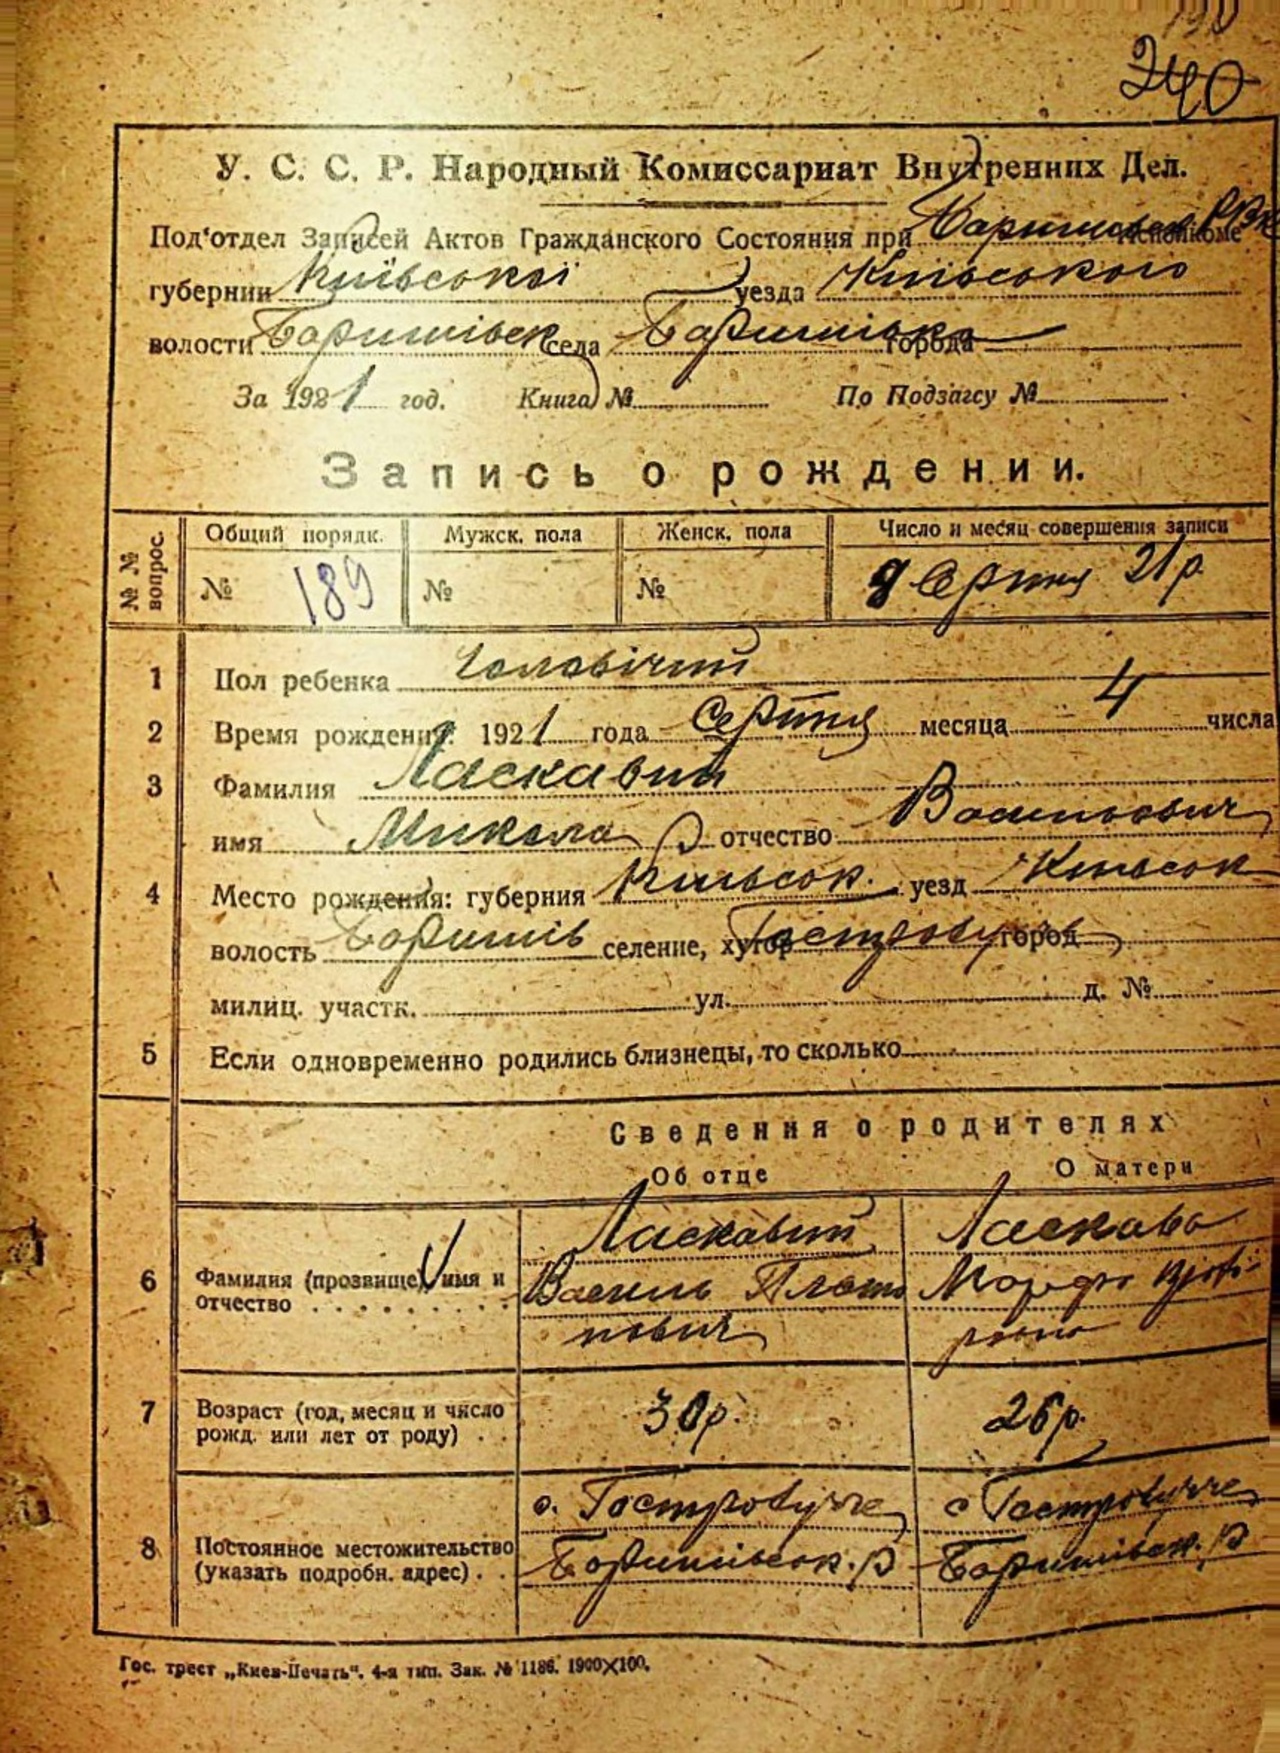 240
У. С. С. Р. Народный Комиссариат Внутренних Дел.
Под'отдел Записей Актов Гражданского Состояния при Исполкоме
губернии Київської уезда Київського
волости Баришівск села Баришівка города
За 1921 год. Книга № По Подзагсу №
Запись о рождении.
№ № вопрос. Общий порядк. Мужск. пола Женск. пола Число и месяц совершения записи
№ 189 № № 8 Серпня 21 р.
1 Пол ребенка Чоловічий
2 Время рождения: 1921 года Серпня месяца 4 числа
3 Фамилия Ласкавий
имя Микола отчество Васильович
4 Место рождения: губерния Київськ. уезд Київськ
волость Баришів селение, хутор город
милиц. участк. ул. д. №
5 Если одновременно родились близнецы, то сколько
Сведения о родителях
Об отце О матери
Ласкавий Ласкава
6 Фамилия (прозвище) имя и Василь Плато Марфа
отчество нович
7 Возраст (год, месяц и число 30 р. 26 р.
рожд. или лет от роду)
с. Гостролуччє с Гостролуччє
8 Постоянное местожительство Баришівськ. р Баришівськ. р
(указать подробн. адрес)
Гос. трест „Киев-Печать". 4-я тип. Зак. № 1186. 1900×100.